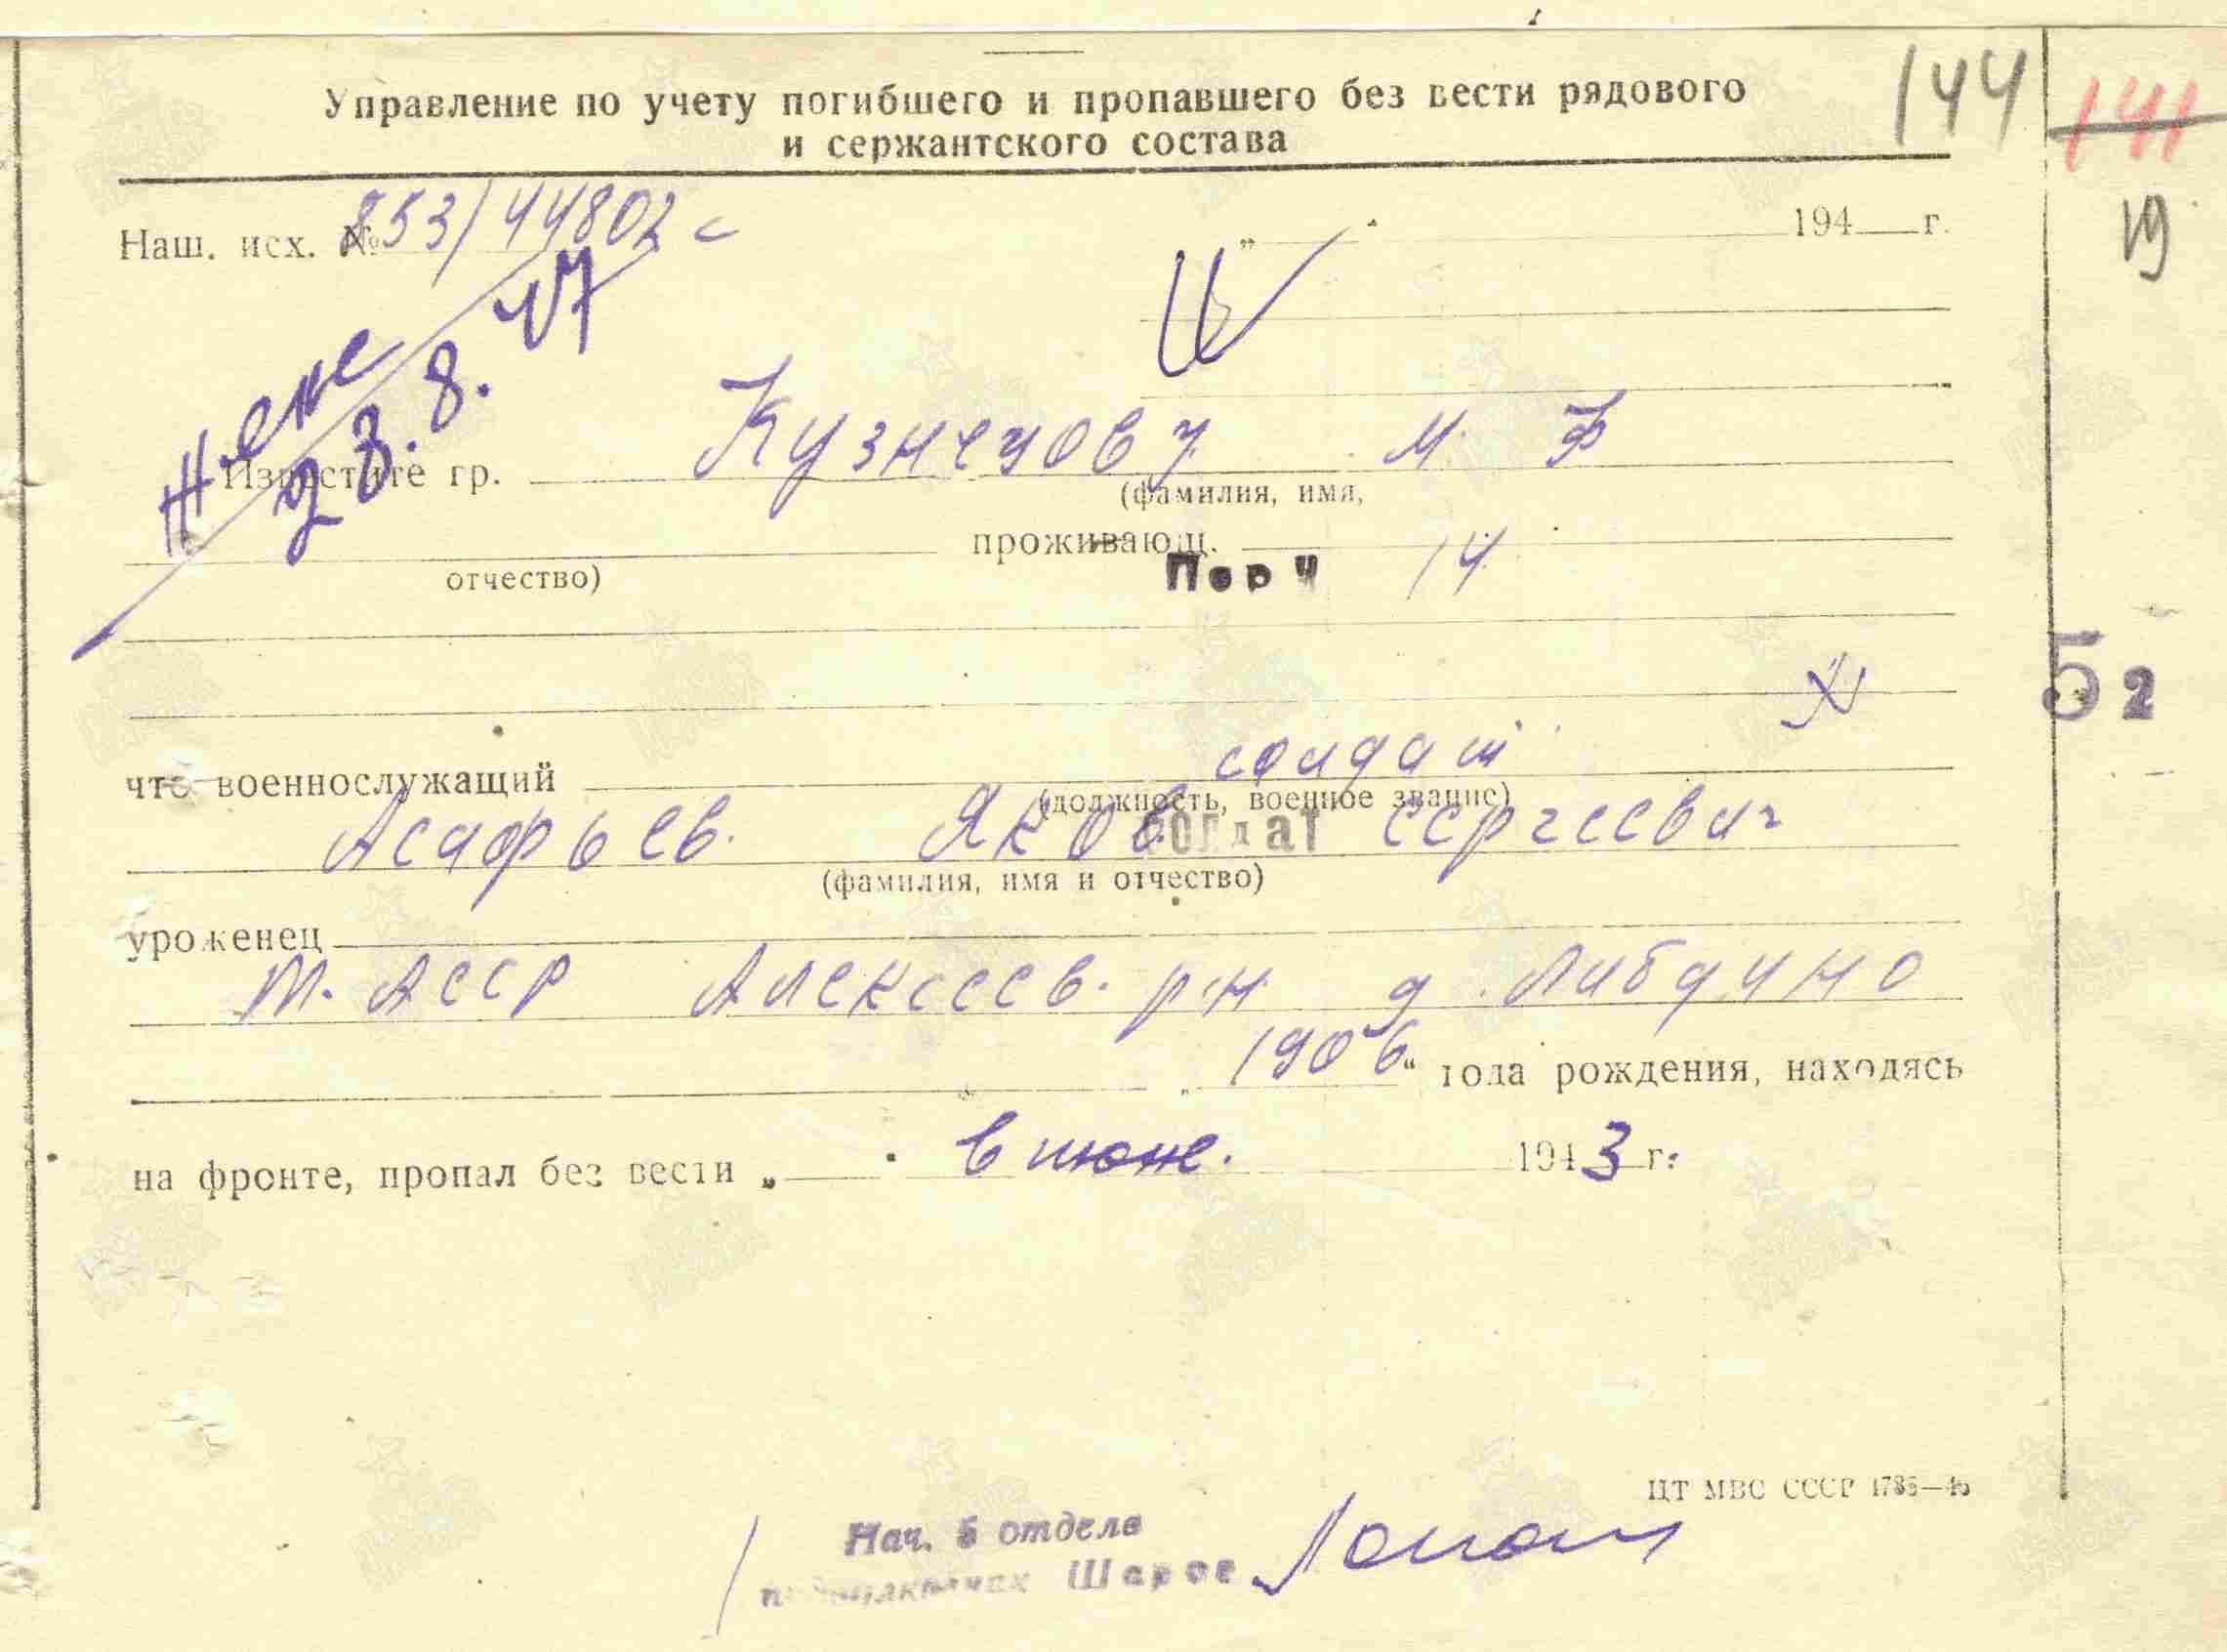 144
141
Управление по учету погибшего и пропавшего без вести рядового
и сержантского состава
19
Наш. исх. № 853/44802 с
„ " 194 г.
23.8.47
Известите гр. Кузнецову М. Ф
(фамилия, имя,
проживающ.
отчество)
14
52
что военнослужащий солдат
(должность, военное звание)
солдат
Асафьев. Яков Сергеевич
(фамилия, имя и отчество)
уроженец
Т. АССР Алексеев. р-н д. Либдино
„ 1906 " года рождения, находясь
на фронте, пропал без вести „ " в июне. 1943 г.
ЦТ МВС СССР
Нач. 5 отдела
подполковник Шаров